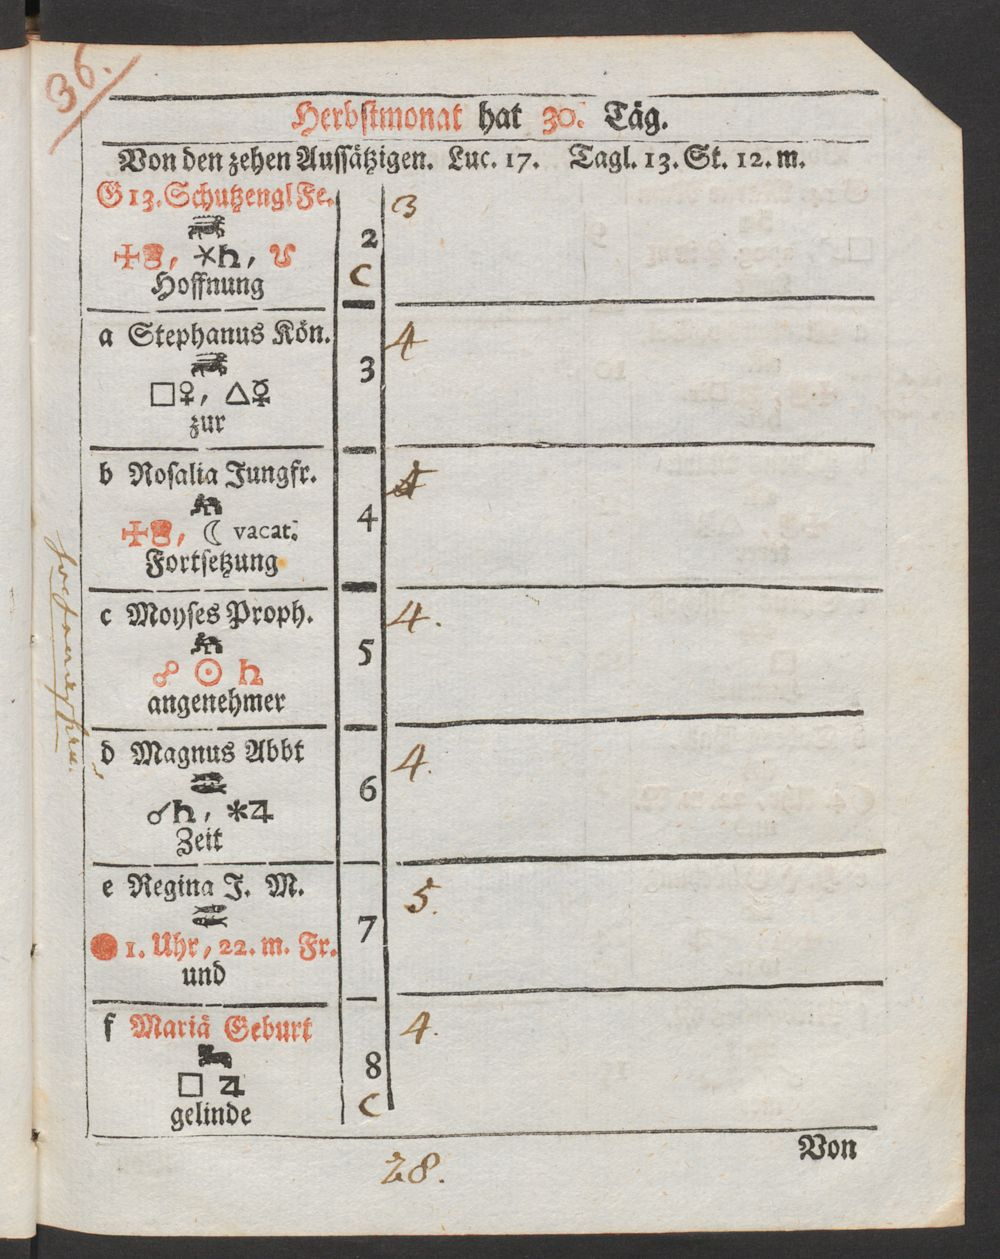 36.
Herbstmonat hat 30. Täg.
Von den zehen Aussätzigen. Luc. 17. Tagl. 13. St. 12. m.
G 13. Schutzengl Fe. 2 3
✠, ⚹♄, ☋ C
Hoffnung
a Stephanus Kön. 3 4
□♀, △☿
zur
b Rosalia Jungfr. 4 4
✠, ☾ vacat.
Fortsetzung
c Moyses Proph. 5 4.
☍ ☉ ♄
angenehmer
d Magnus Abbt 6 4.
☌♄, ⚹♃
Zeit
e Regina J. M. 7 5.
1. Uhr, 22. m. Fr.
und
f Mariä Geburt 8 4.
□ ♃ C
gelinde
Von
28.